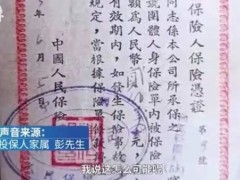 保險人保險憑證
同志係本公司所承保之
號團體人身保險單內被保險
額為人民幣
元，
有效期內，如發生保險事故
當根據保險單
規定，
中國人民保險
年
月
日
声音来源：
投保人家属 彭先生
我说这怎么可能呢